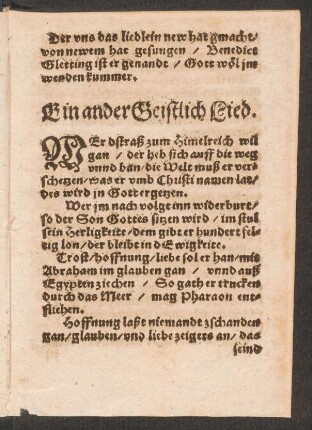 Der vns das liedlein new hat gmacht/
von newem hat gesungen / Benedict
Gletting ist er genandt / Gott wöl jm
wenden kummer.
Ein ander Geistlich Lied.
WEr dstraß zum Himelreich wil
gan / der heb sich auff die weg
vnnd ban / die Welt muß er ver-
schetzen / was er vmb Christi namen lat /
des wird jn Gott ergetzen.
Wer jm nach volgt inn widerburt /
so der Son Gottes sitzen wird / im stul
sein Herligkeite / dem gibt er hundert fel-
tig lon / der bleibt in dEwigkeite.
Trost / hoffnung / liebe sol er han / mit
Abraham im glauben gan / vnnd auß
Egypten ziechen / So gath er trucken
durch das Meer / mag Pharaon ent-
fliehen.
Hoffnung laßt niemandt zschanden
gan / glauben / vnd liebe zeigers an / das
seind